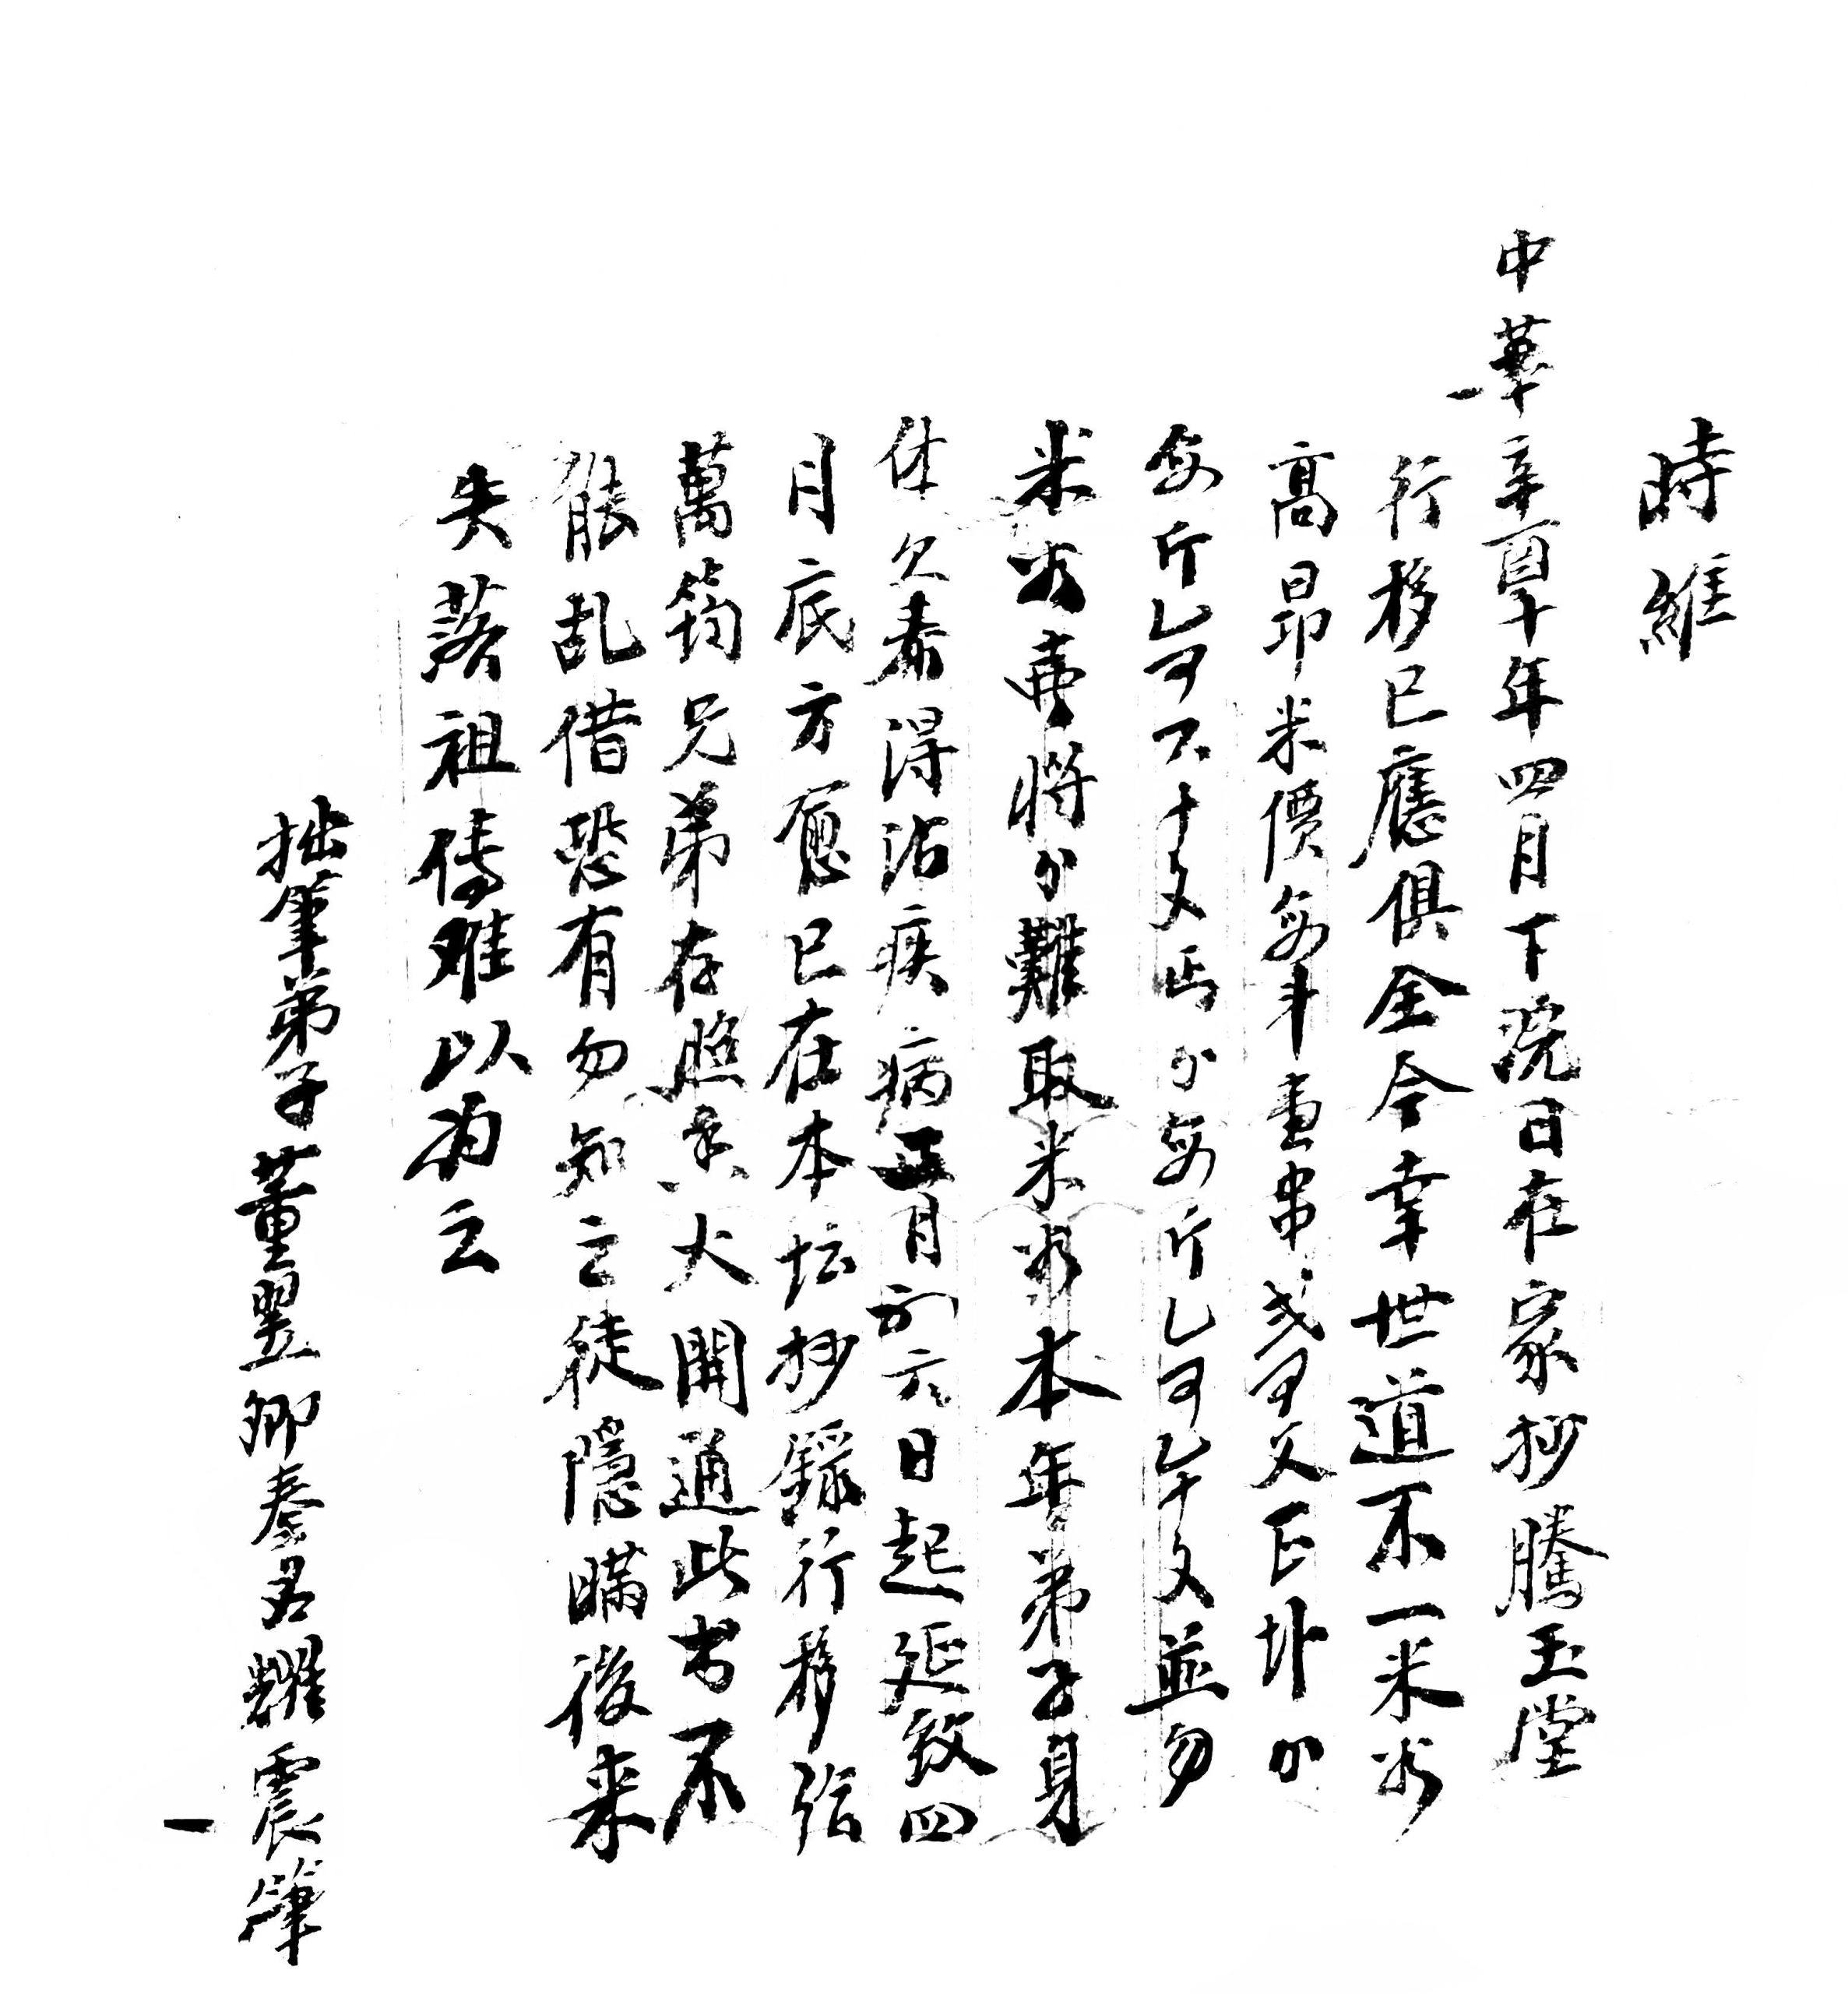 時維
中華辛酉十年四月下浣日在家抄騰玉堂
行移已應俱全今幸世道不一米
高昻米價每斗壹串弍百文正外
每斤七百六十文每斤七百七十文並勿
米壺將難取米本年弟子身
体欠泰得沾疾病正月初六日起延致四
月底方愈已在本坛抄錄行移
萬筠兄弟存照大開通此书不
能乱借恐有勿知之徒隱瞞後来
失落祖傳难以为之
拙筆弟子董昱卿奏名耀震筆